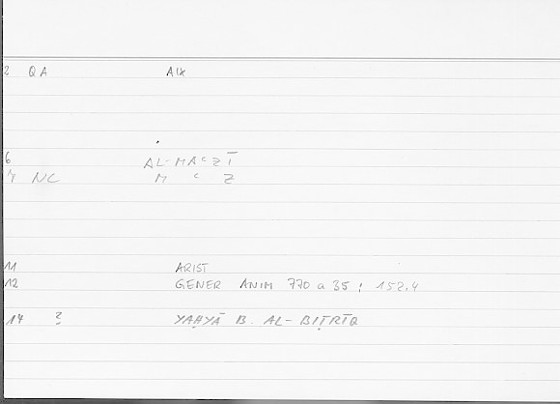 2 QA AIX
6 AL-MAʿZĪ
7 NC M ʿ Z
11 ARIST
12 GENER ANIM 770 a 35 ; 152.4
17 ? YAḤYĀ B. AL-BIṬRĪQ